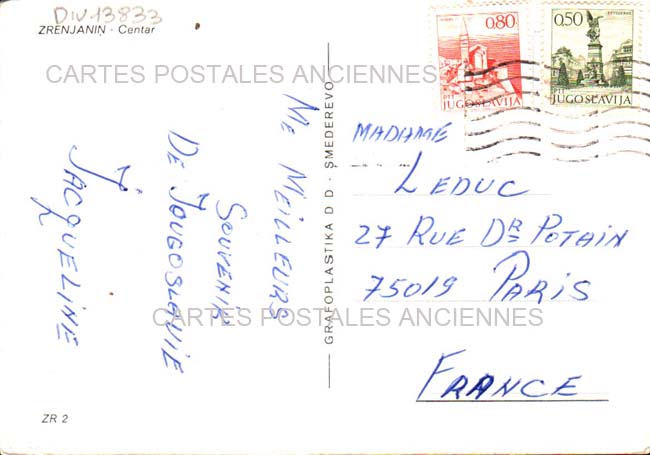 DIV-13833
ZRENJANIN - Centar
0.80
JUGOSLAVIJA
0.50
JUGOSLAVIJA
CARTES POSTALES ANCIENNES
ME MEILLEURS
SOUVENIR
DE JOUGOSLAVIE
JACQUELINE
GRAFOPLASTIKA D D - SMEDEREVO
MADAME
LEDUC
27 RUE DR POTAIN
75019 PARIS
FRANCE
CARTES POSTALES ANCIENNES
ZR 2